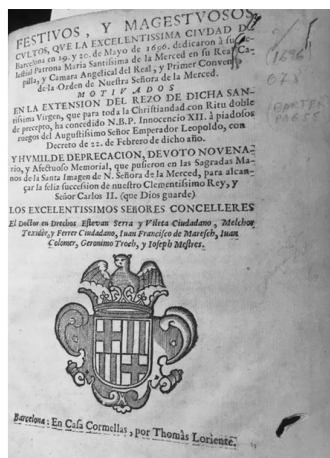 FESTIVOS, Y MAGESTVOSOS
CVLTOS, QVE LA EXCELENTISSIMA CIVDAD DE
Barcelona en 19. y 20. de Mayo de 1696. dedicaron à su Ce-
lestial Patrona Maria Santissima de la Merced en su Real Ca-
pilla, y Camara Angelical del Real, y Primer Convento
de la Orden de Nuestra Señora de la Merced.
MOTIVADOS
EN LA EXTENSION DEL REZO DE DICHA SAN-
tissima Virgen, que para toda la Christiandad con Ritu doble
de precepto, ha concedido N.B.P. Innocencio XII. à piadosos
ruegos del Augustissimo Señor Emperador Leopoldo, con
Decreto de 22. de Febrero de dicho año.
Y HVMILDE DEPRECACION, DEVOTO NOVENA-
rio, y Afectuoso Memorial, que pusieron en las Sagradas Ma-
nos de la Santa Imagen de N. Señora de la Merced, para alcan-
çar la feliz succession de nuestro Clementissimo Rey, y
Señor Carlos II. (que Dios guarde)
LOS EXCELENTISSIMOS SEÑORES CONCELLERES
El Doctor en Drechos Estevan Serra y Vileta Ciudadano, Melchor
Texidòr, y Ferrer Ciudadano, Iuan Francisco de Maresch, Iuan
Colomer, Geronimo Troch, y Ioseph Mestres.
Barcelona: En Casa Cormellas, por Thomàs Loriente.
(1696)